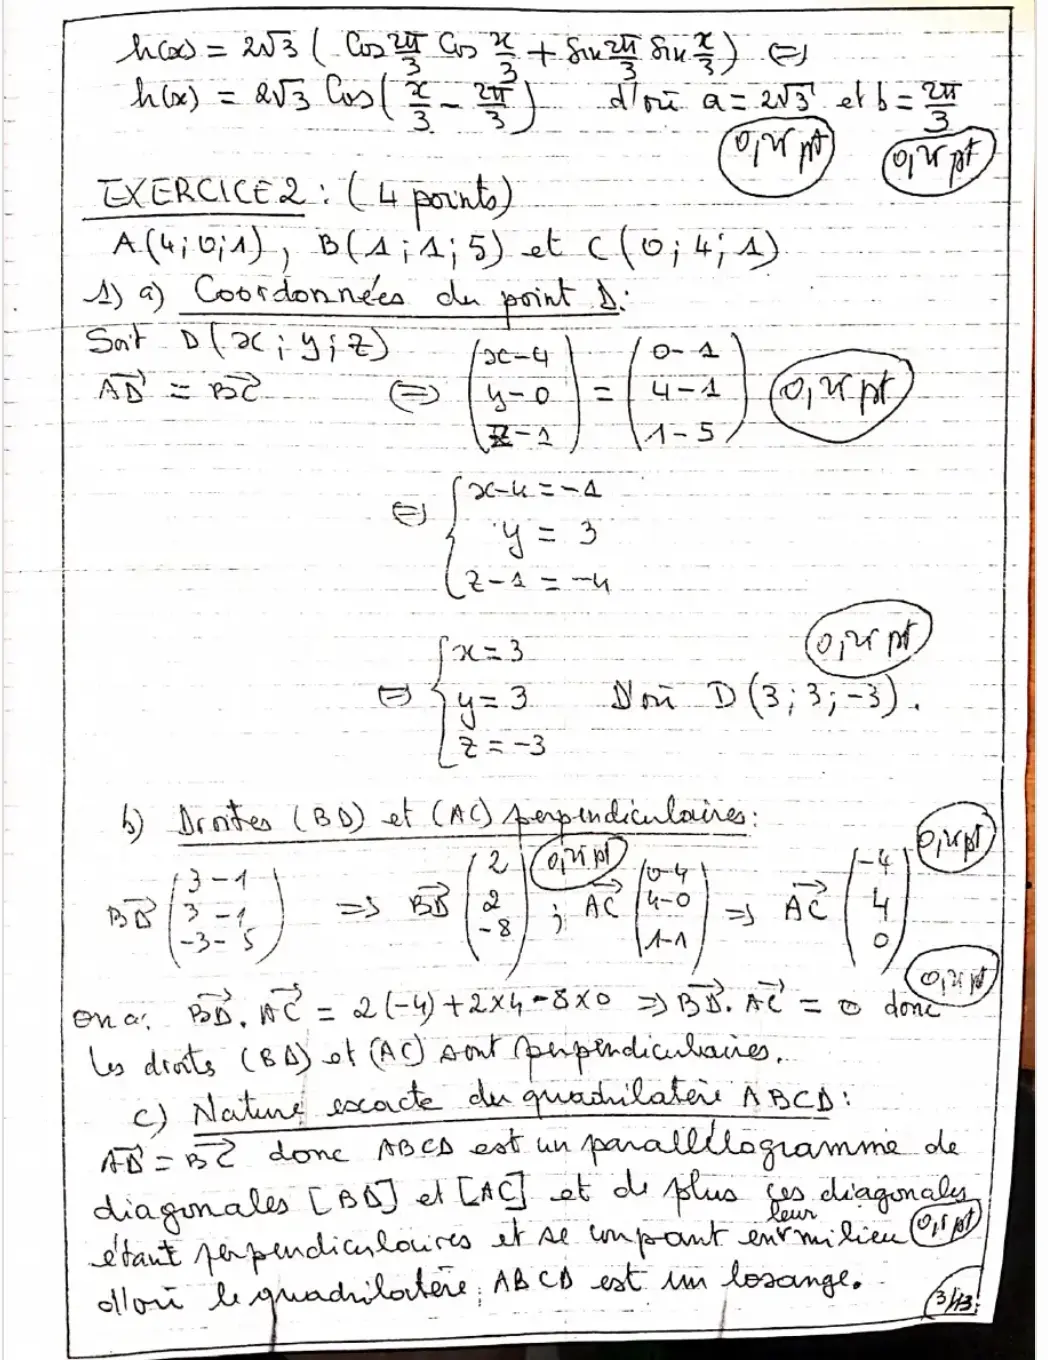 h(x) = 2√3 ( Cos 2π/3 Cos x/3 + Sin 2π/3 Sin x/3 ) ⇔
h(x) = 2√3 Cos( x/3 - 2π/3 ) d'où a = 2√3 et b = 2π/3
0,25 pt 0,25 pt
EXERCICE 2 : ( 4 points)
A(4;0;1), B(1;1;5) et C(0;4;1)
1) a) Coordonnées du point D:
Soit D(x;y;z)
AD = BC ⇔ (x-4 ; y-0 ; z-1) = (0-1 ; 4-1 ; 1-5) 0,25 pt
⇔ { x-4 = -1
y = 3
z-1 = -4
0,25 pt
⇔ { x = 3
y = 3 D'où D(3;3;-3).
z = -3
b) Droites (BD) et (AC) perpendiculaires:
BD (3-1 ; 3-1 ; -3-5) ⇒ BD (2 ; 2 ; -8) 0,25 pt ; AC (0-4 ; 4-0 ; 1-1) ⇒ AC (-4 ; 4 ; 0) 0,25 pt
on a: BD. AC = 2(-4)+2×4-8×0 ⇒ BD. AC = 0 donc 0,25 pt
les droits (BD) et (AC) sont perpendiculaires.
c) Nature exacte du quadrilatère ABCD:
AD = BC donc ABCD est un parallélogramme de
diagonales [BD] et [AC] et de plus ces diagonales
étant perpendiculaires et se coupant en leur milieu 0,5 pt
d'où le quadrilatère ABCD est un losange.
3/13